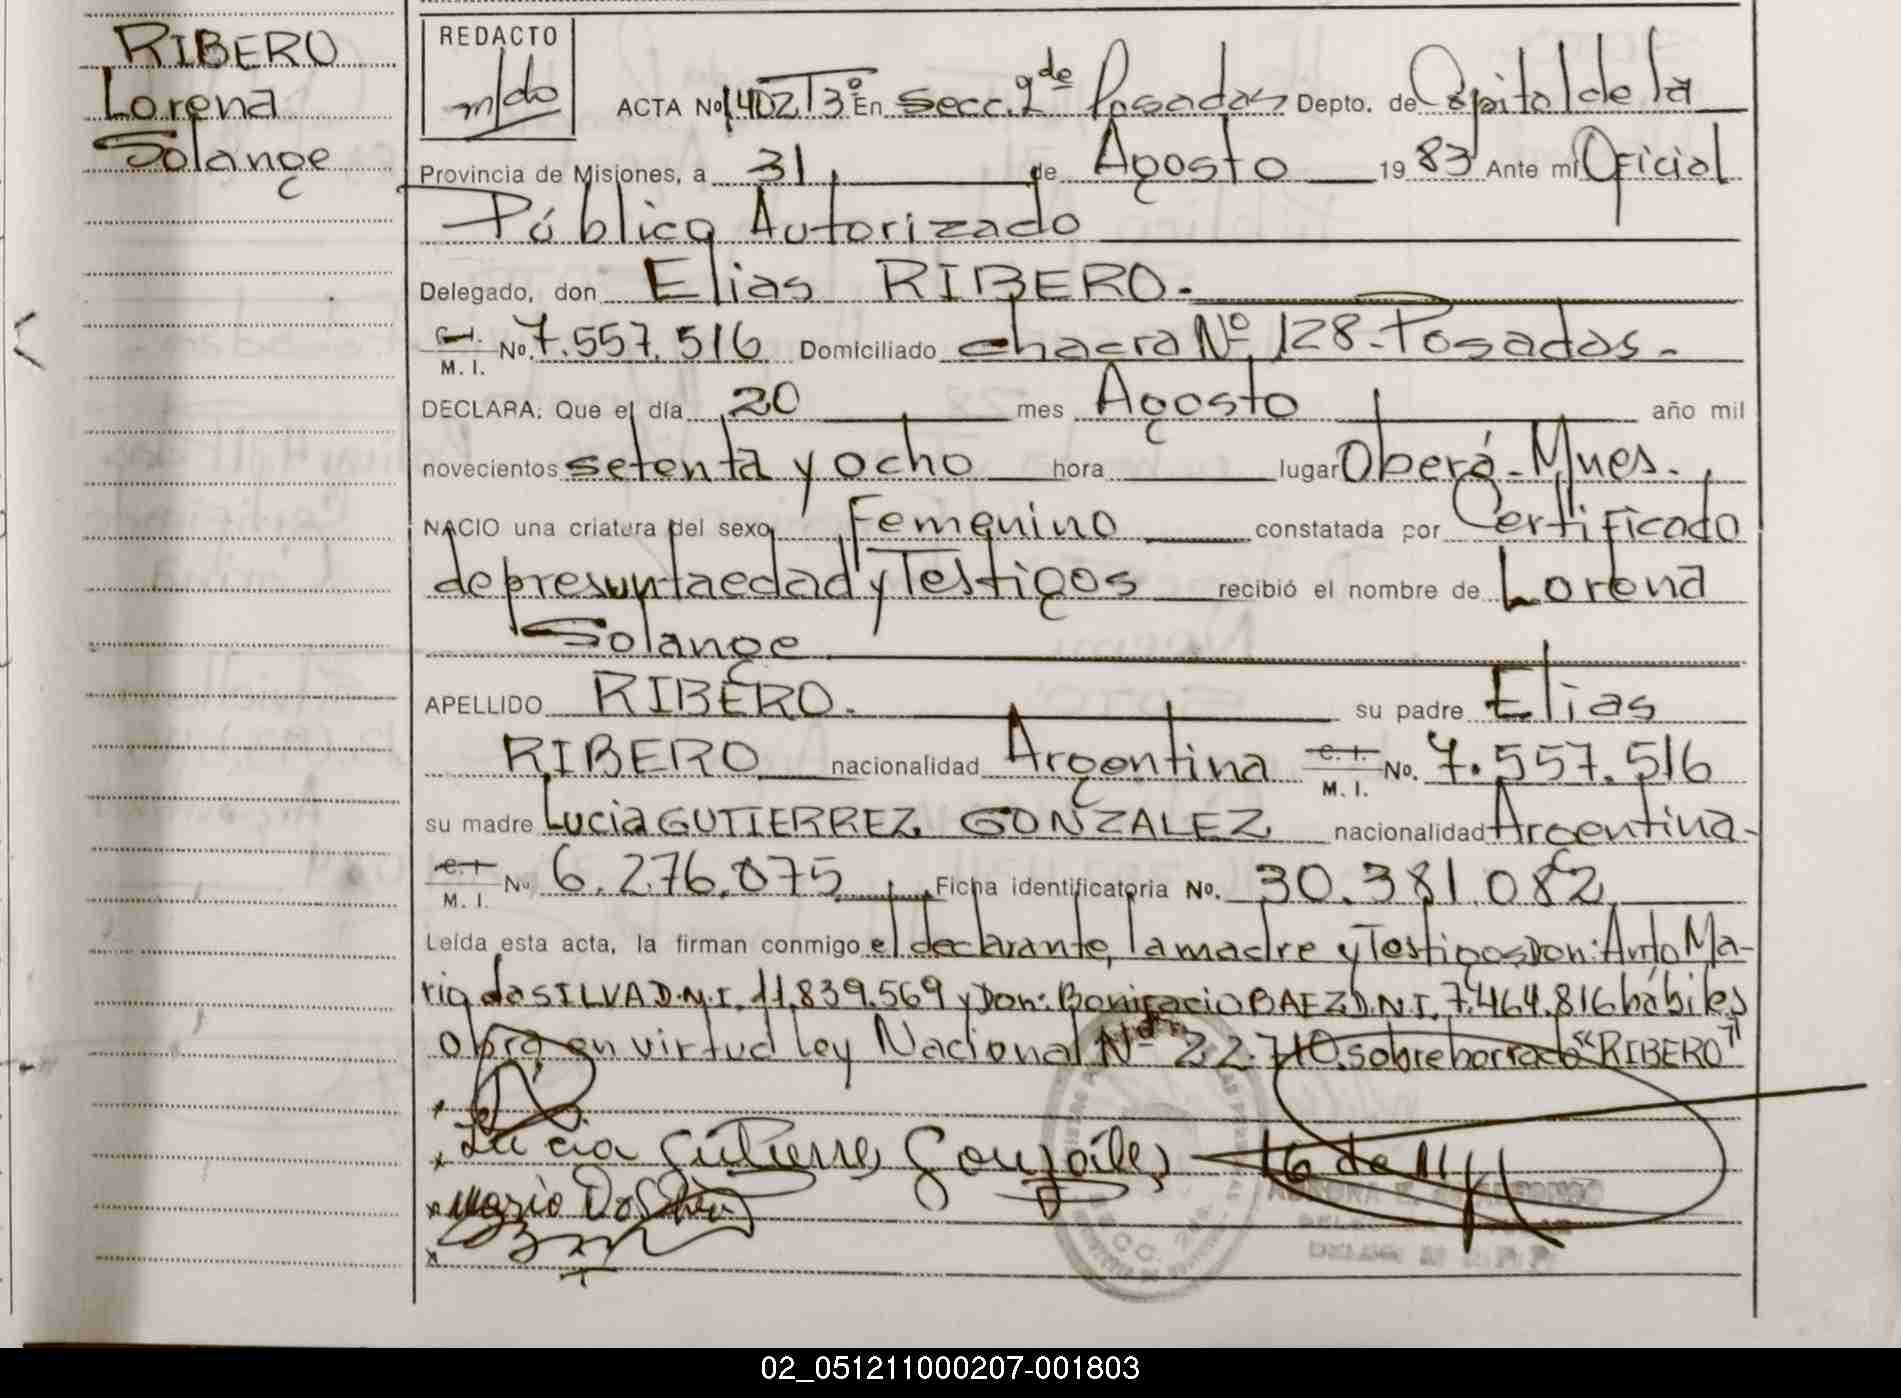 RIBERO
Lorena
Solange
REDACTO
m/do
ACTA Nº 1402 T3º En Secc. 2da Posadas Depto. de Capital de la
Provincia de Misiones, a 31 de Agosto 1983 Ante mi Oficial
Público Autorizado
Delegado, don Elias RIBERO.
C.I. M.I. No. 7.557.516 Domiciliado chacra Nº 128-Posadas.
DECLARA: Que el día 20 mes Agosto año mil
novecientos setenta y ocho hora lugar Oberá-Mnes.
NACIO una criatura del sexo Femenino constatada por Certificado
de presunta edad y Testigos recibió el nombre de Lorena
Solange
APELLIDO RIBERO. su padre Elias
RIBERO nacionalidad Argentina C.I. M.I. No. 7.557.516
su madre Lucia GUTIERREZ GONZALEZ nacionalidad Argentina-
C.I. M.I. No 6.276.075 Ficha identificatoria No. 30.381.082
Leída esta acta, la firman conmigo el declarante, la madre y Testigos Don: Ma-
rio da SILVA D.N.I. 11.839.569 y Don: Bonifacio BAEZ D.N.I. 7.464.816 hábiles
obra en virtud ley Nacional Nº 22.710. sobreborrado "RIBERO"
Lucia Gutierres Gonzales
Mario Da Silva
SECC. 2da.
02_051211000207-001803